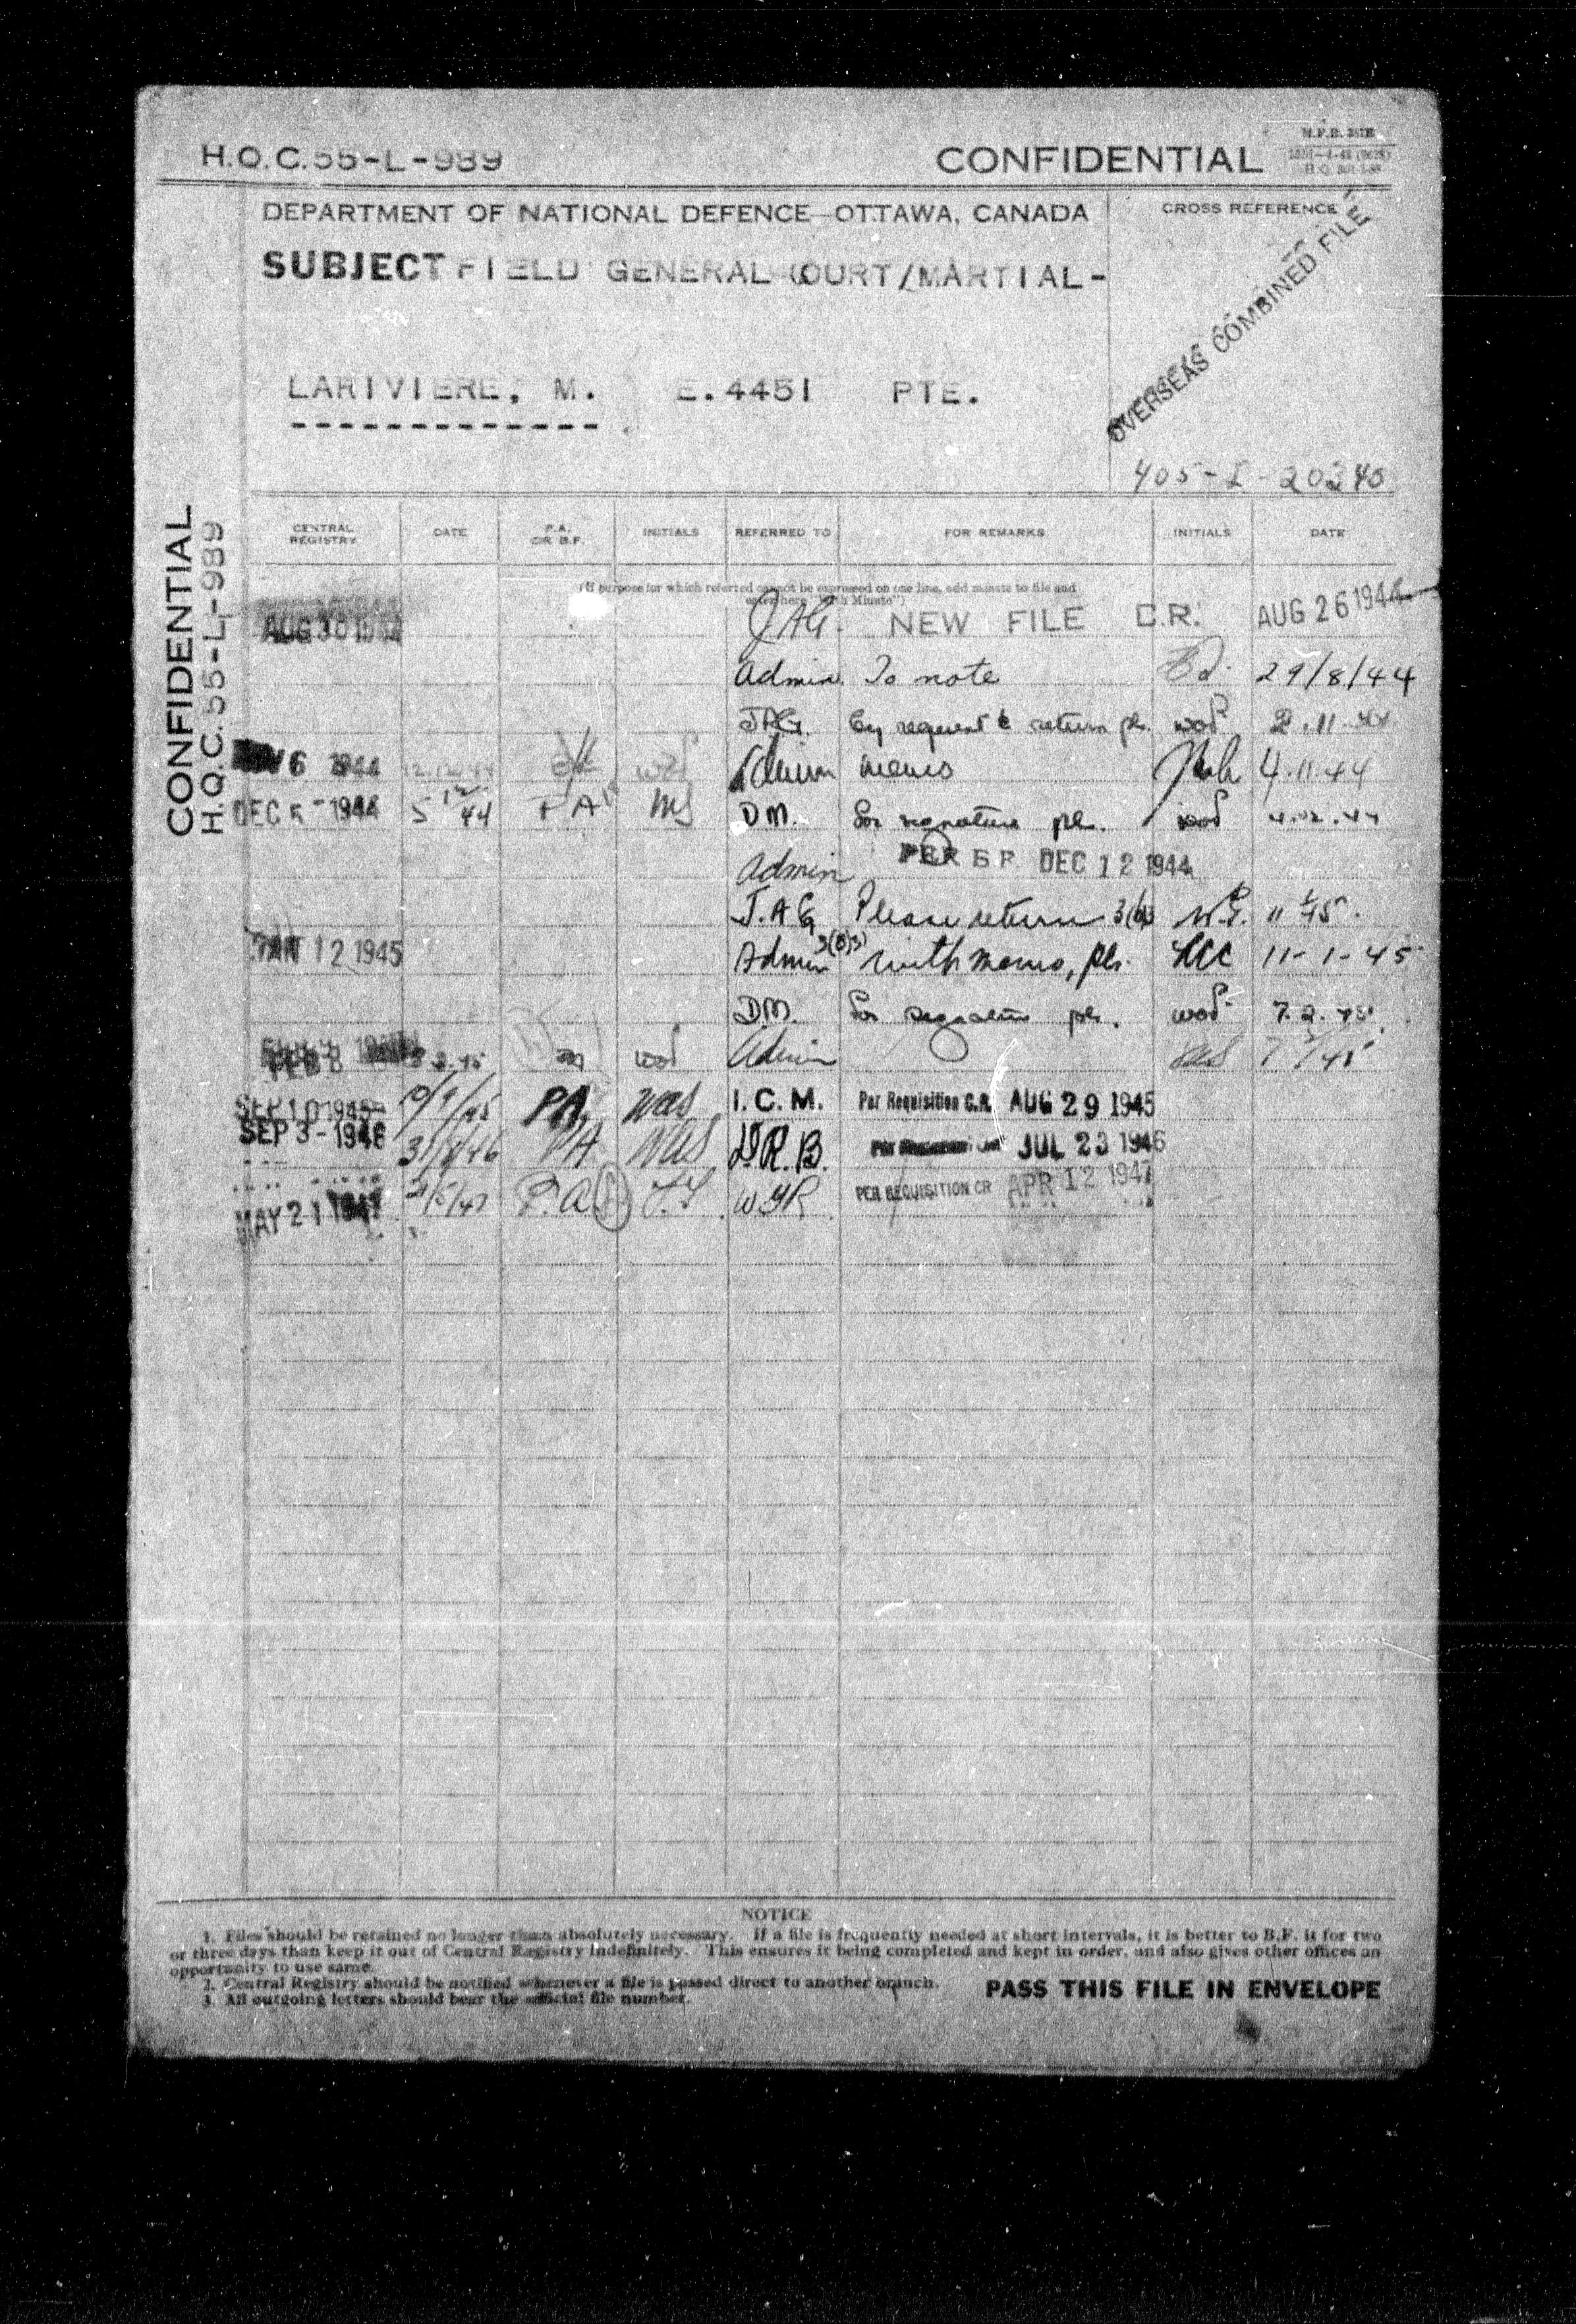 H.Q.C.55-L-989
CONFIDENTIAL
M.F.B. 387E
DEPARTMENT OF NATIONAL DEFENCE—OTTAWA, CANADA
CROSS REFERENCE
SUBJECT FIELD GENERAL COURT/MARTIAL-
OVERSEAS COMBINED FILE
LARIVIERE, M. E.4451 PTE.
405-L-20340
CONFIDENTIAL
H.Q.C.55-L-989
CENTRAL REGISTRY DATE P.A. OR B.F. INITIALS REFERRED TO FOR REMARKS INITIALS DATE
(If purpose for which referred cannot be expressed on one line, add minute to file and
enter here "With Minute")
AUG 30 JAG. NEW FILE C.R. AUG 26 1944
Admin. To note 29/8/44
JAG. By request & return pls. wod 2.11.44
NOV 6 1944 Admin memo 4.11.44
DEC 5-1944 5 12/44 PA MS D.M. for signature pls. wod
Admin PER BF DEC 12 1944
J.A.G. Please return
JAN 12 1945 Admin 3(B)3) with memo, pls. 11-1-45
D.M. for signature pls. wod 7.2.45
FEB 8 wod Admin
SEP 10 1945 10/9/45 PA. was I.C.M. Per Requisition C.R. AUG 29 1945
SEP 3-1946 PA was R.B. JUL 23 1946
MAY 21 1947 P.A. WGR PER REQUISITION CR APR 12 1947
NOTICE
1. Files should be retained no longer than absolutely necessary. If a file is frequently needed at short intervals, it is better to B.F. it for two
or three days than keep it out of Central Registry indefinitely. This ensures it being completed and kept in order, and also gives other offices an
opportunity to use same.
2. Central Registry should be notified whenever a file is passed direct to another branch.
3. All outgoing letters should bear the official file number.
PASS THIS FILE IN ENVELOPE